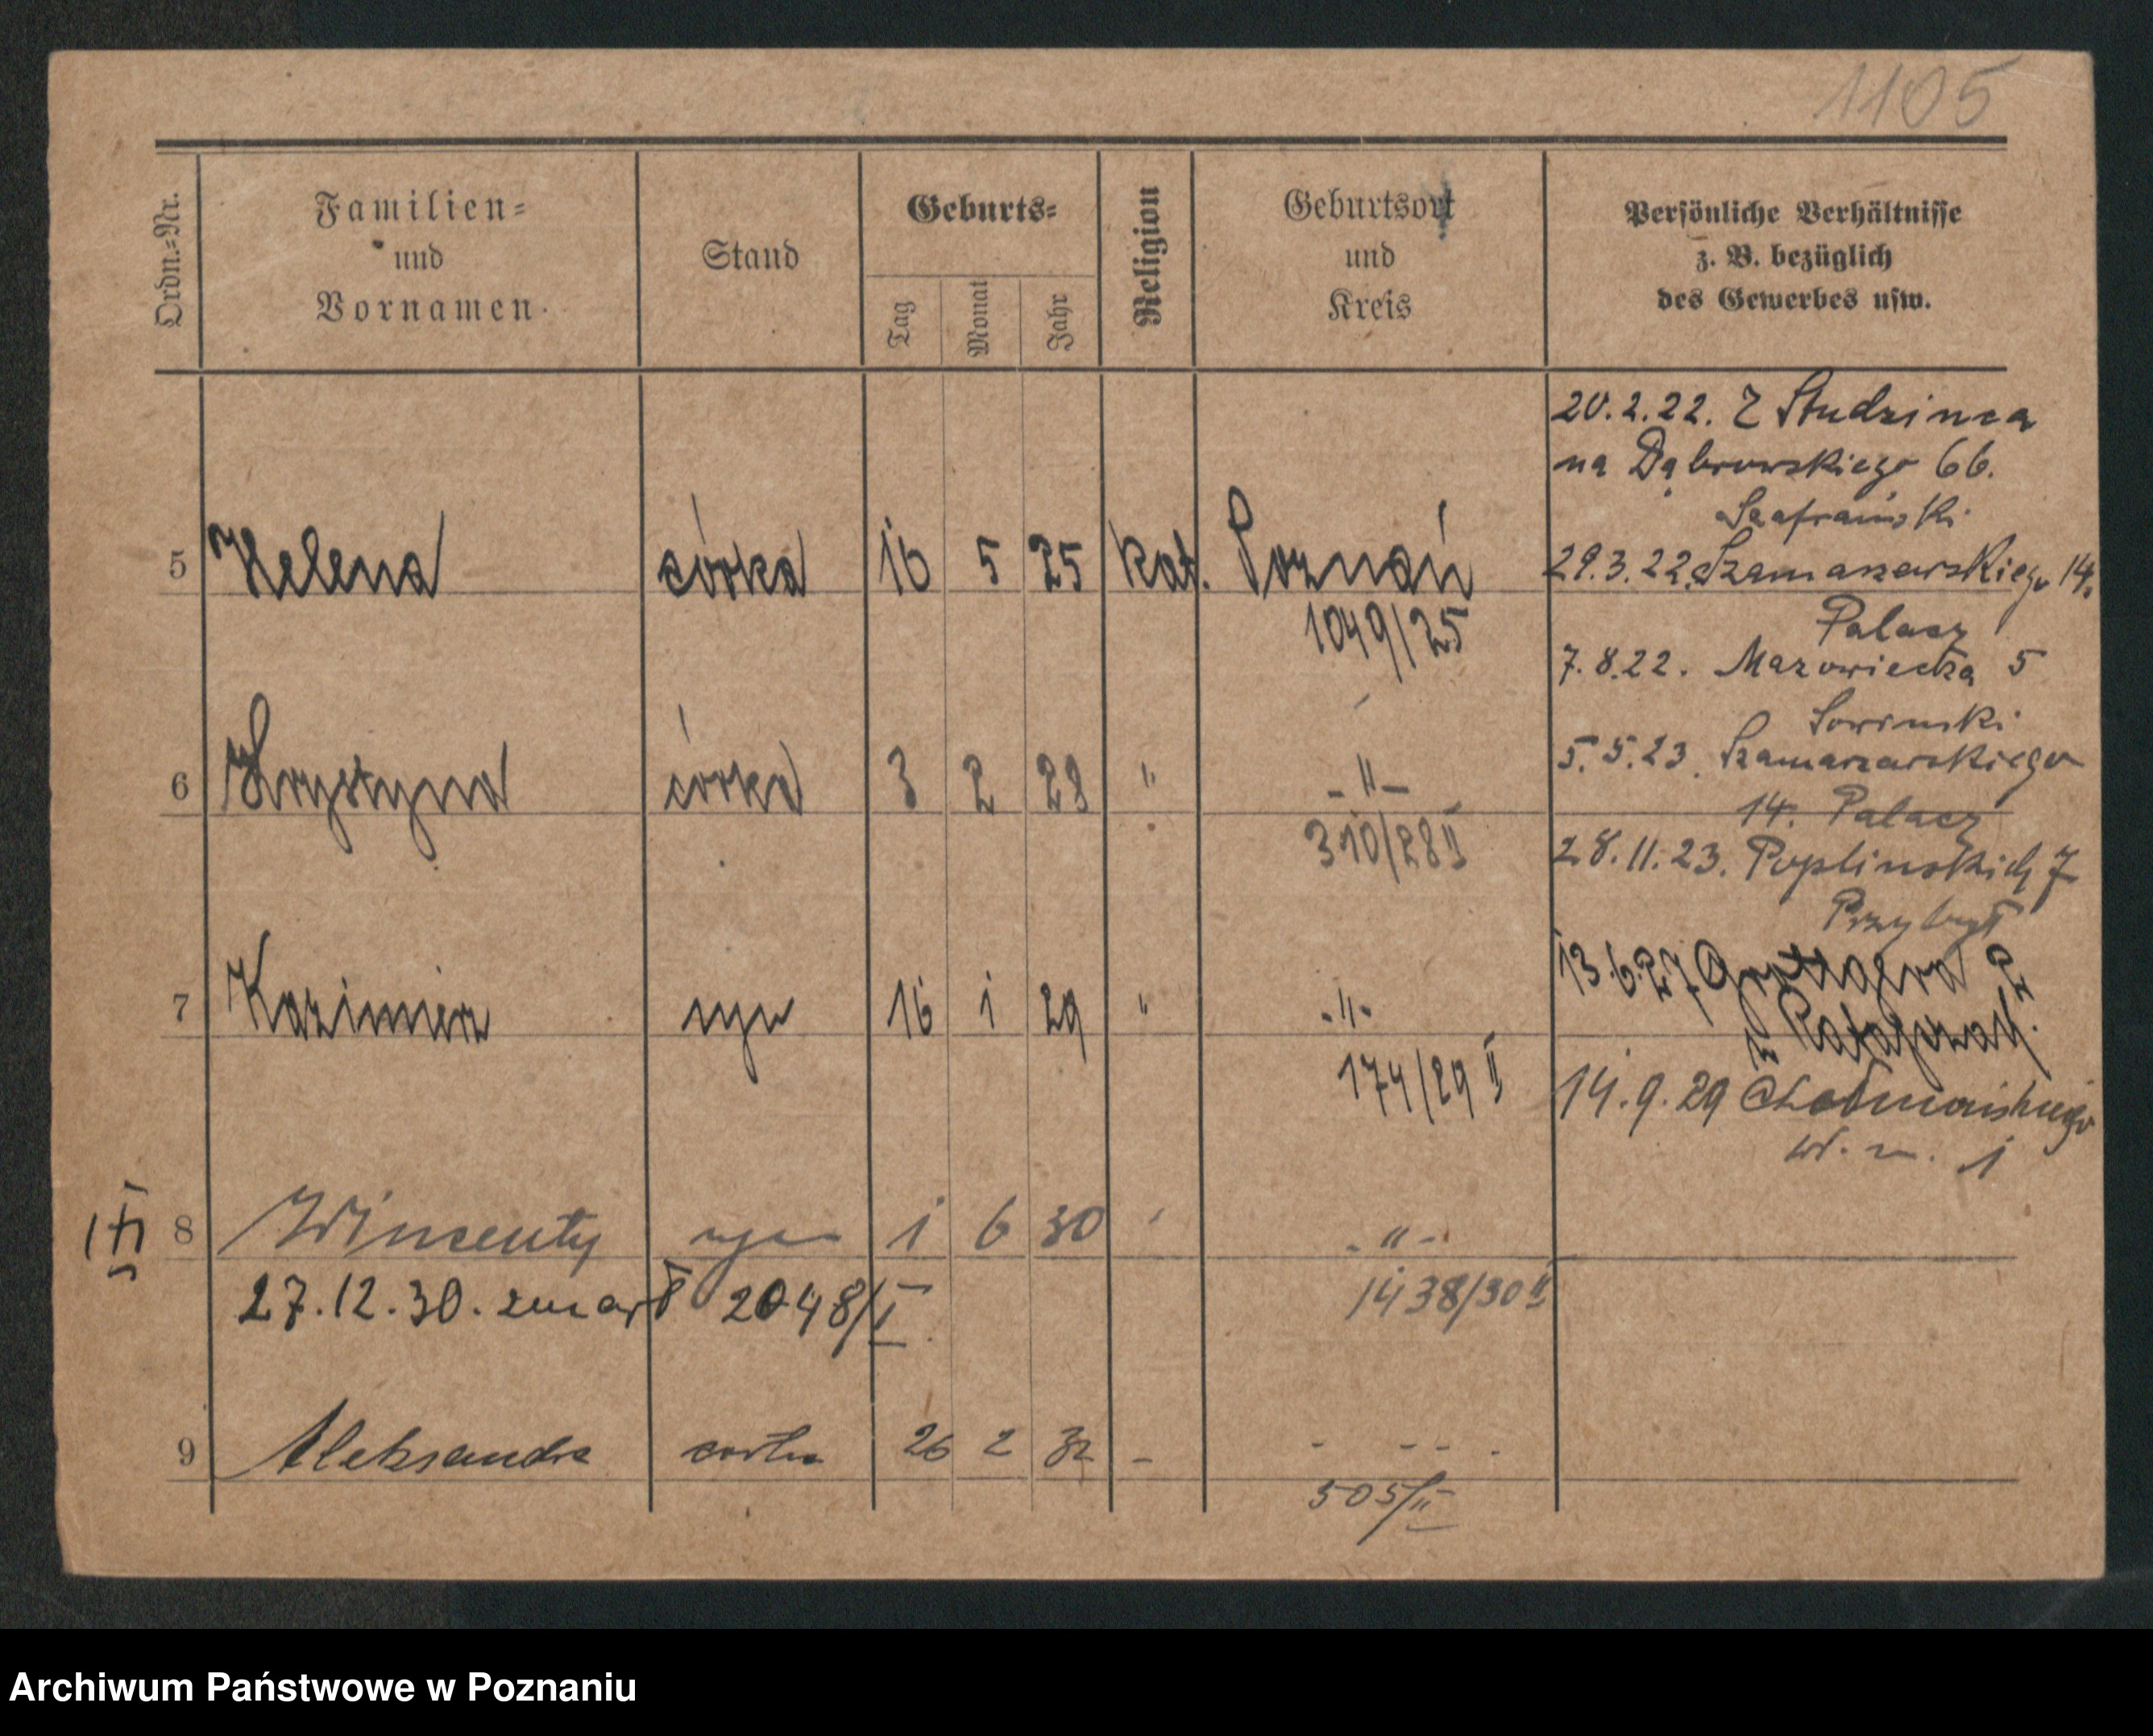 1105
Ordn.=Nr.
Familien=
und
Vornamen.
Stand
Geburts=
Tag
Monat
Jahr
Religion
Geburtsort
und
Kreis
Persönliche Verhältnisse
z. B. bezüglich
des Gewerbes usw.
20.2.22. Z Studzinca
na Dąbrowskiego 66.
Szafrański
5 Helena córka 16 5 25 kat. Poznań
1049/25
29.3.22. Szamarzewskiego 14.
Palacz
7.8.22. Mazowiecka 5
Sowinski
6 Krystyna córka 3 2 28 " -"-
310/28 II
5.5.23. Szamarzewskiego
14. Palacz
28.11.23. Poplinskich 7
Przybył
7 Kazimierz syn 16 1 29 " -"-
174/29 II
13.6.27 Grottgera 2
u Ratajczak.
14.9.29 Chełmońskiego
w. m. 1
8 Wincenty syn 1 6 30 " -"-
27.12.30. zmarł 2048/I
1438/30 II
9 Aleksandra córka 26 2 32 - - - - -
505/II
Archiwum Państwowe w Poznaniu